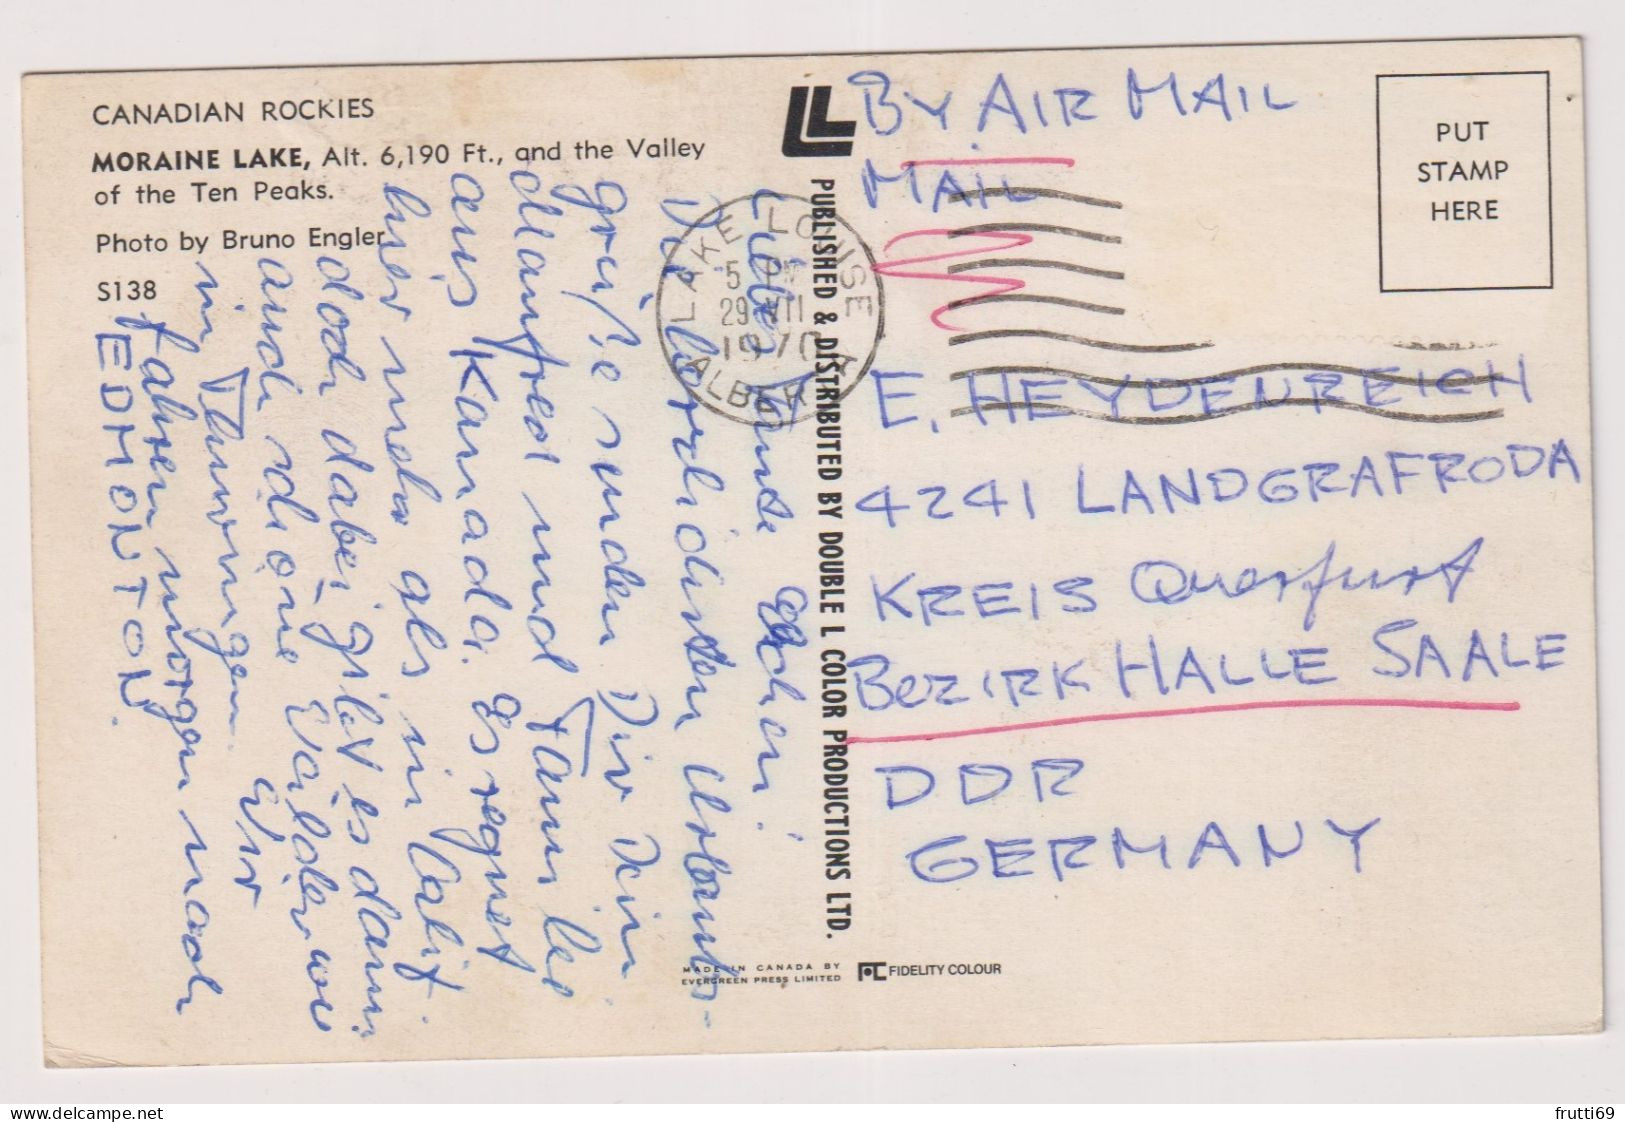 CANADIAN ROCKIES
MORAINE LAKE, Alt. 6,190 Ft., and the Valley
of the Ten Peaks.
Photo by Bruno Engler
S138
Liebe Tante
Die herzlichsten Urlaubs-
grüße senden Dir Dein
Manfred und Familie
aus Kanada. Es regnet
hier mehr als in Calif.
doch dabei gibt es dann
auch schöne Bilder wie
in Thüringen. Wir
fahren morgen nach
EDMONTON.
LAKE LOUISE
5 PM
29 VII
1970
ALBERTA
PUBLISHED & DISTRIBUTED BY DOUBLE L COLOR PRODUCTIONS LTD.
MADE IN CANADA BY
EVERGREEN PRESS LIMITED
FIDELITY COLOUR
BY AIR MAIL
MAIL
PUT
STAMP
HERE
E. HEYDENREICH
4241 LANDGRAFRODA
KREIS Querfurt
BEZIRK HALLE SAALE
DDR
GERMANY
frutti69